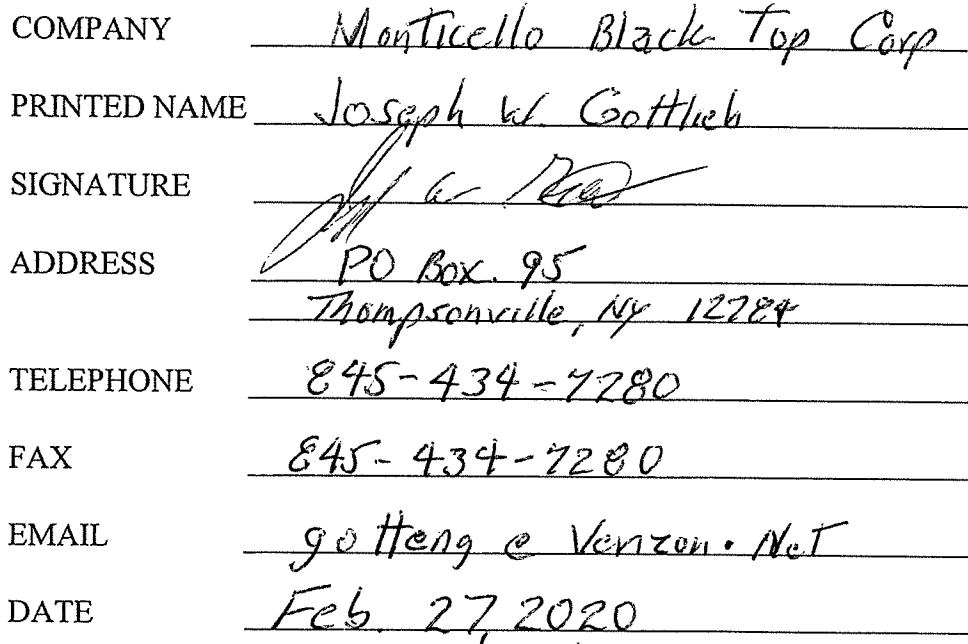 COMPANY Monticello Black Top Corp
PRINTED NAME Joseph W. Gottlieb
SIGNATURE
ADDRESS PO Box. 95
Thompsonville, NY 12784
TELEPHONE 845-434-7280
FAX 845-434-7280
EMAIL gotteng@Verizon.Net
DATE Feb. 27, 2020